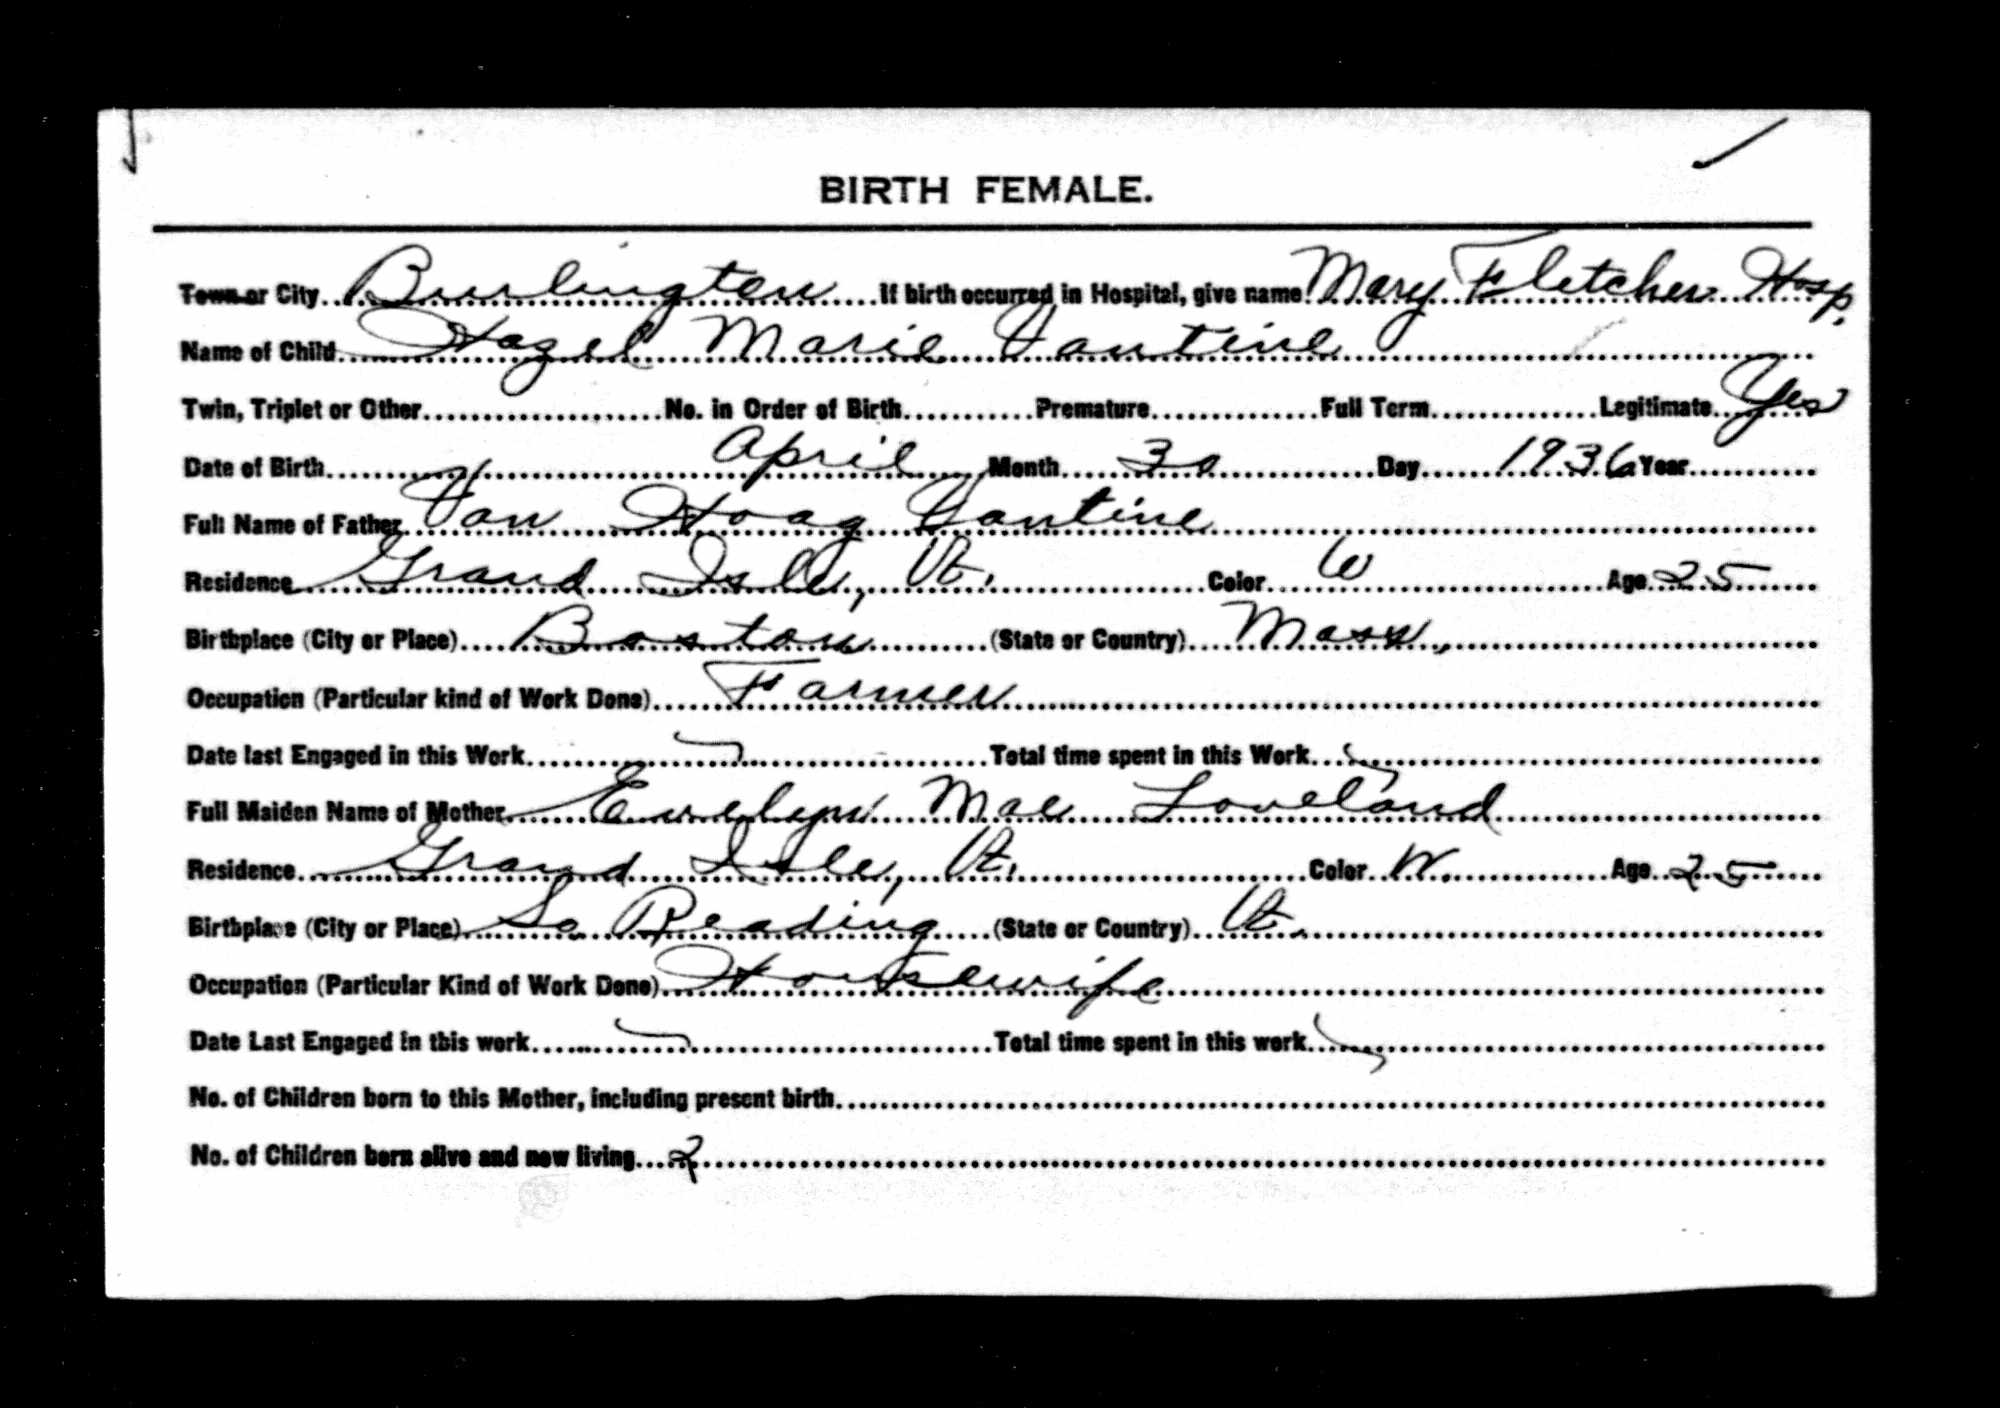 BIRTH FEMALE.
Town or City Burlington If birth occurred in Hospital, give name Mary Fletcher Hosp.
Name of Child Hazel Marie Vantine
Twin, Triplet or Other No. in Order of Birth Premature Full Term Legitimate Yes
Date of Birth April Month 30 Day 1936 Year
Full Name of Father Van Hoag Vantine
Residence Grand Isle, Vt. Color W Age 25
Birthplace (City or Place) Boston (State or Country) Mass.
Occupation (Particular kind of Work Done) Farmer
Date last Engaged in this Work Total time spent in this Work
Full Maiden Name of Mother Evelyn Mae Loveland
Residence Grand Isle, Vt. Color W. Age 25
Birthplace (City or Place) So Reading (State or Country) Vt.
Occupation (Particular Kind of Work Done) Housewife
Date Last Engaged in this work Total time spent in this work
No. of Children born to this Mother, including present birth
No. of Children born alive and now living 2